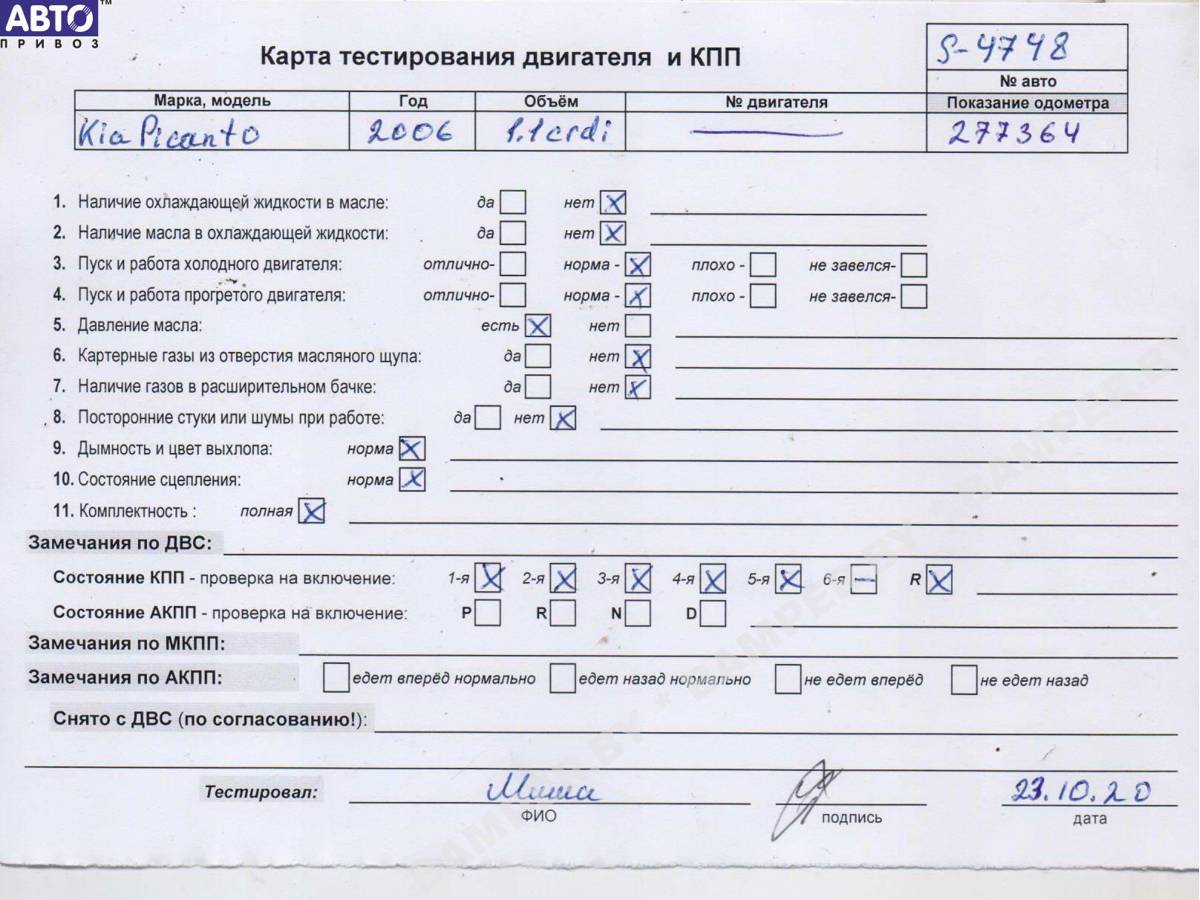 АВТО™
ПРИВОЗ
S-4748
Карта тестирования двигателя и КПП
№ авто
Марка, модель Год Объём № двигателя Показание одометра
Kia Picanto 2006 1.1 crdi — 277364
1. Наличие охлаждающей жидкости в масле: да нет X
2. Наличие масла в охлаждающей жидкости: да нет X
3. Пуск и работа холодного двигателя: отлично- норма - X плохо - не завелся-
4. Пуск и работа прогретого двигателя: отлично- норма - X плохо - не завелся-
5. Давление масла: есть X нет
6. Картерные газы из отверстия масляного щупа: да нет X
7. Наличие газов в расширительном бачке: да нет X
8. Посторонние стуки или шумы при работе: да нет X
9. Дымность и цвет выхлопа: норма X
10. Состояние сцепления: норма X
11. Комплектность : полная X
Замечания по ДВС:
Состояние КПП - проверка на включение: 1-я X 2-я X 3-я X 4-я X 5-я X 6-я — R X
Состояние АКПП - проверка на включение: P R N D
Замечания по МКПП:
Замечания по АКПП: едет вперёд нормально едет назад нормально не едет вперёд не едет назад
Снято с ДВС (по согласованию!):
Тестировал: Миша 23.10.20
ФИО подпись дата
BAMPER.BY * BAMPER.BY * BAMPER.BY